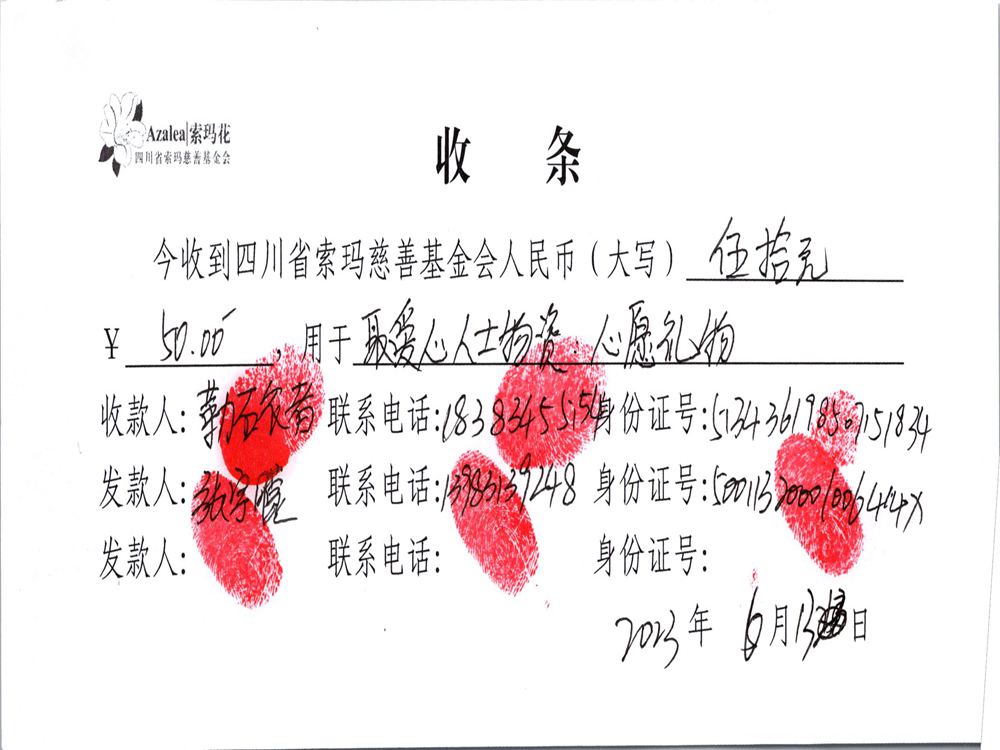 Azalea|索玛花
四川省索玛慈善基金会
收 条
今收到四川省索玛慈善基金会人民币（大写） 伍拾元
¥ 50.00 ，用于 取爱心人士物资：心愿礼物
收款人: 勒石衣 联系电话: 18383455154 身份证号: 513436198507151834
发款人: 张宗 联系电话: 13983139248 身份证号: 50011320001006444X
发款人: 联系电话: 身份证号:
2023 年 6 月 13 日